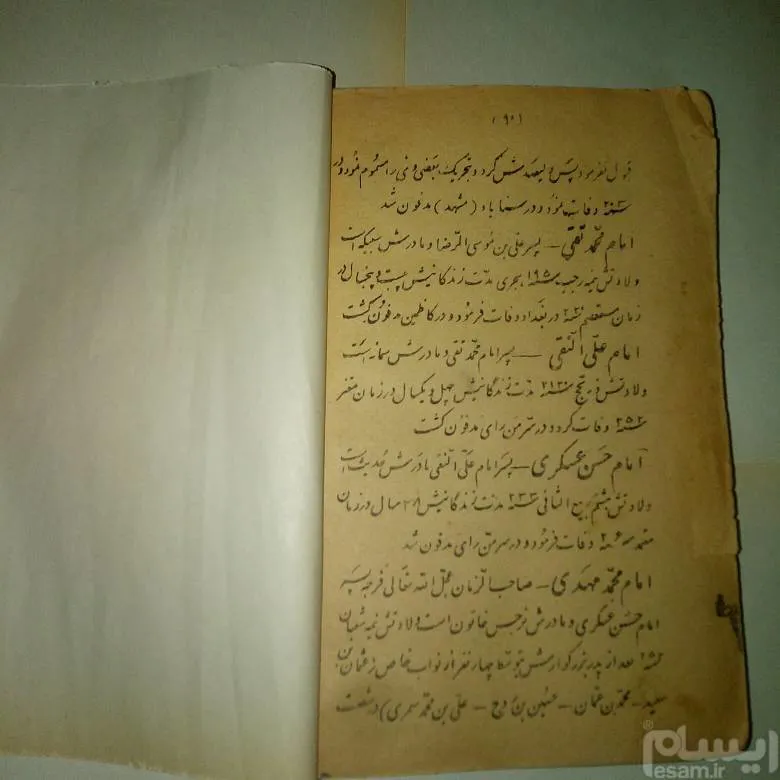 (۹۰)
قبول نفرمود پس ولیعهدش کرد و بتحریک بعضی وی را مسموم نمود و در
سنه ۲۰۳ وفات نمود و در سناباد (مشهد) مدفون شد
امام محمد تقی – پسر علی بن موسی الرضا و مادرش سبیکه است
ولادتش نیمه رجب سنه ۱۹۵ هجری مدت زندگانیش بیست و پنجسال در
زمان معتصم سنه ۲۲۰ در بغداد وفات فرمود و در کاظمین مدفون گشت
امام علی النقی – پسر امام محمد تقی و مادرش سمانه است
ولادتش ذیحج سنه ۲۱۳ مدت زندگانیش چهل و یکسال در زمان معتز
سنه ۲۵۲ وفات کرد و در سرمن رای مدفون گشت
امام حسن عسکری – پسر امام علی النقی مادرش حدیث است
ولادتش هشتم ربیع الثانی سنه ۲۳۲ مدت زندگانیش ۲۸ سال در زمان
معتمد سنه ۲۶۰ وفات فرمود و در سرمن رای مدفون شد
امام محمد مهدی – صاحب الزمان عجل الله تعالی فرجه پسر
امام حسن عسکری و مادرش نرجس خاتون است ولادتش نیمه شعبان
بعد از پدر بزرگوارش بتوسط چهار نفر از نواب خاص (عثمان بن
سعید – محمد بن عثمان – حسین بن روح – علی بن محمد سمری) در شصت
ایسام
esam.ir